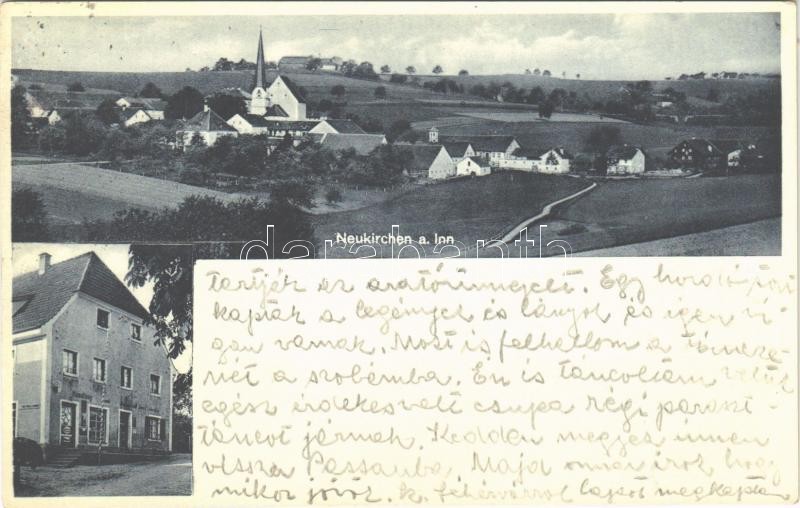 Neukirchen a. Inn
darabanth
tartják az aratóünnepet. Egy hordó
kaptak a legények és lányok és igen vi-
gan vannak. Most is felhallom a
a szobámba. Én is táncoltam velük
egész érdekes volt csupa régi paraszt-
táncot járnak. Kedden megyek innen
vissza Passauba. Majd onnan írok, hogy
mikor jövök. K. fehérvárról lapot megkaptam